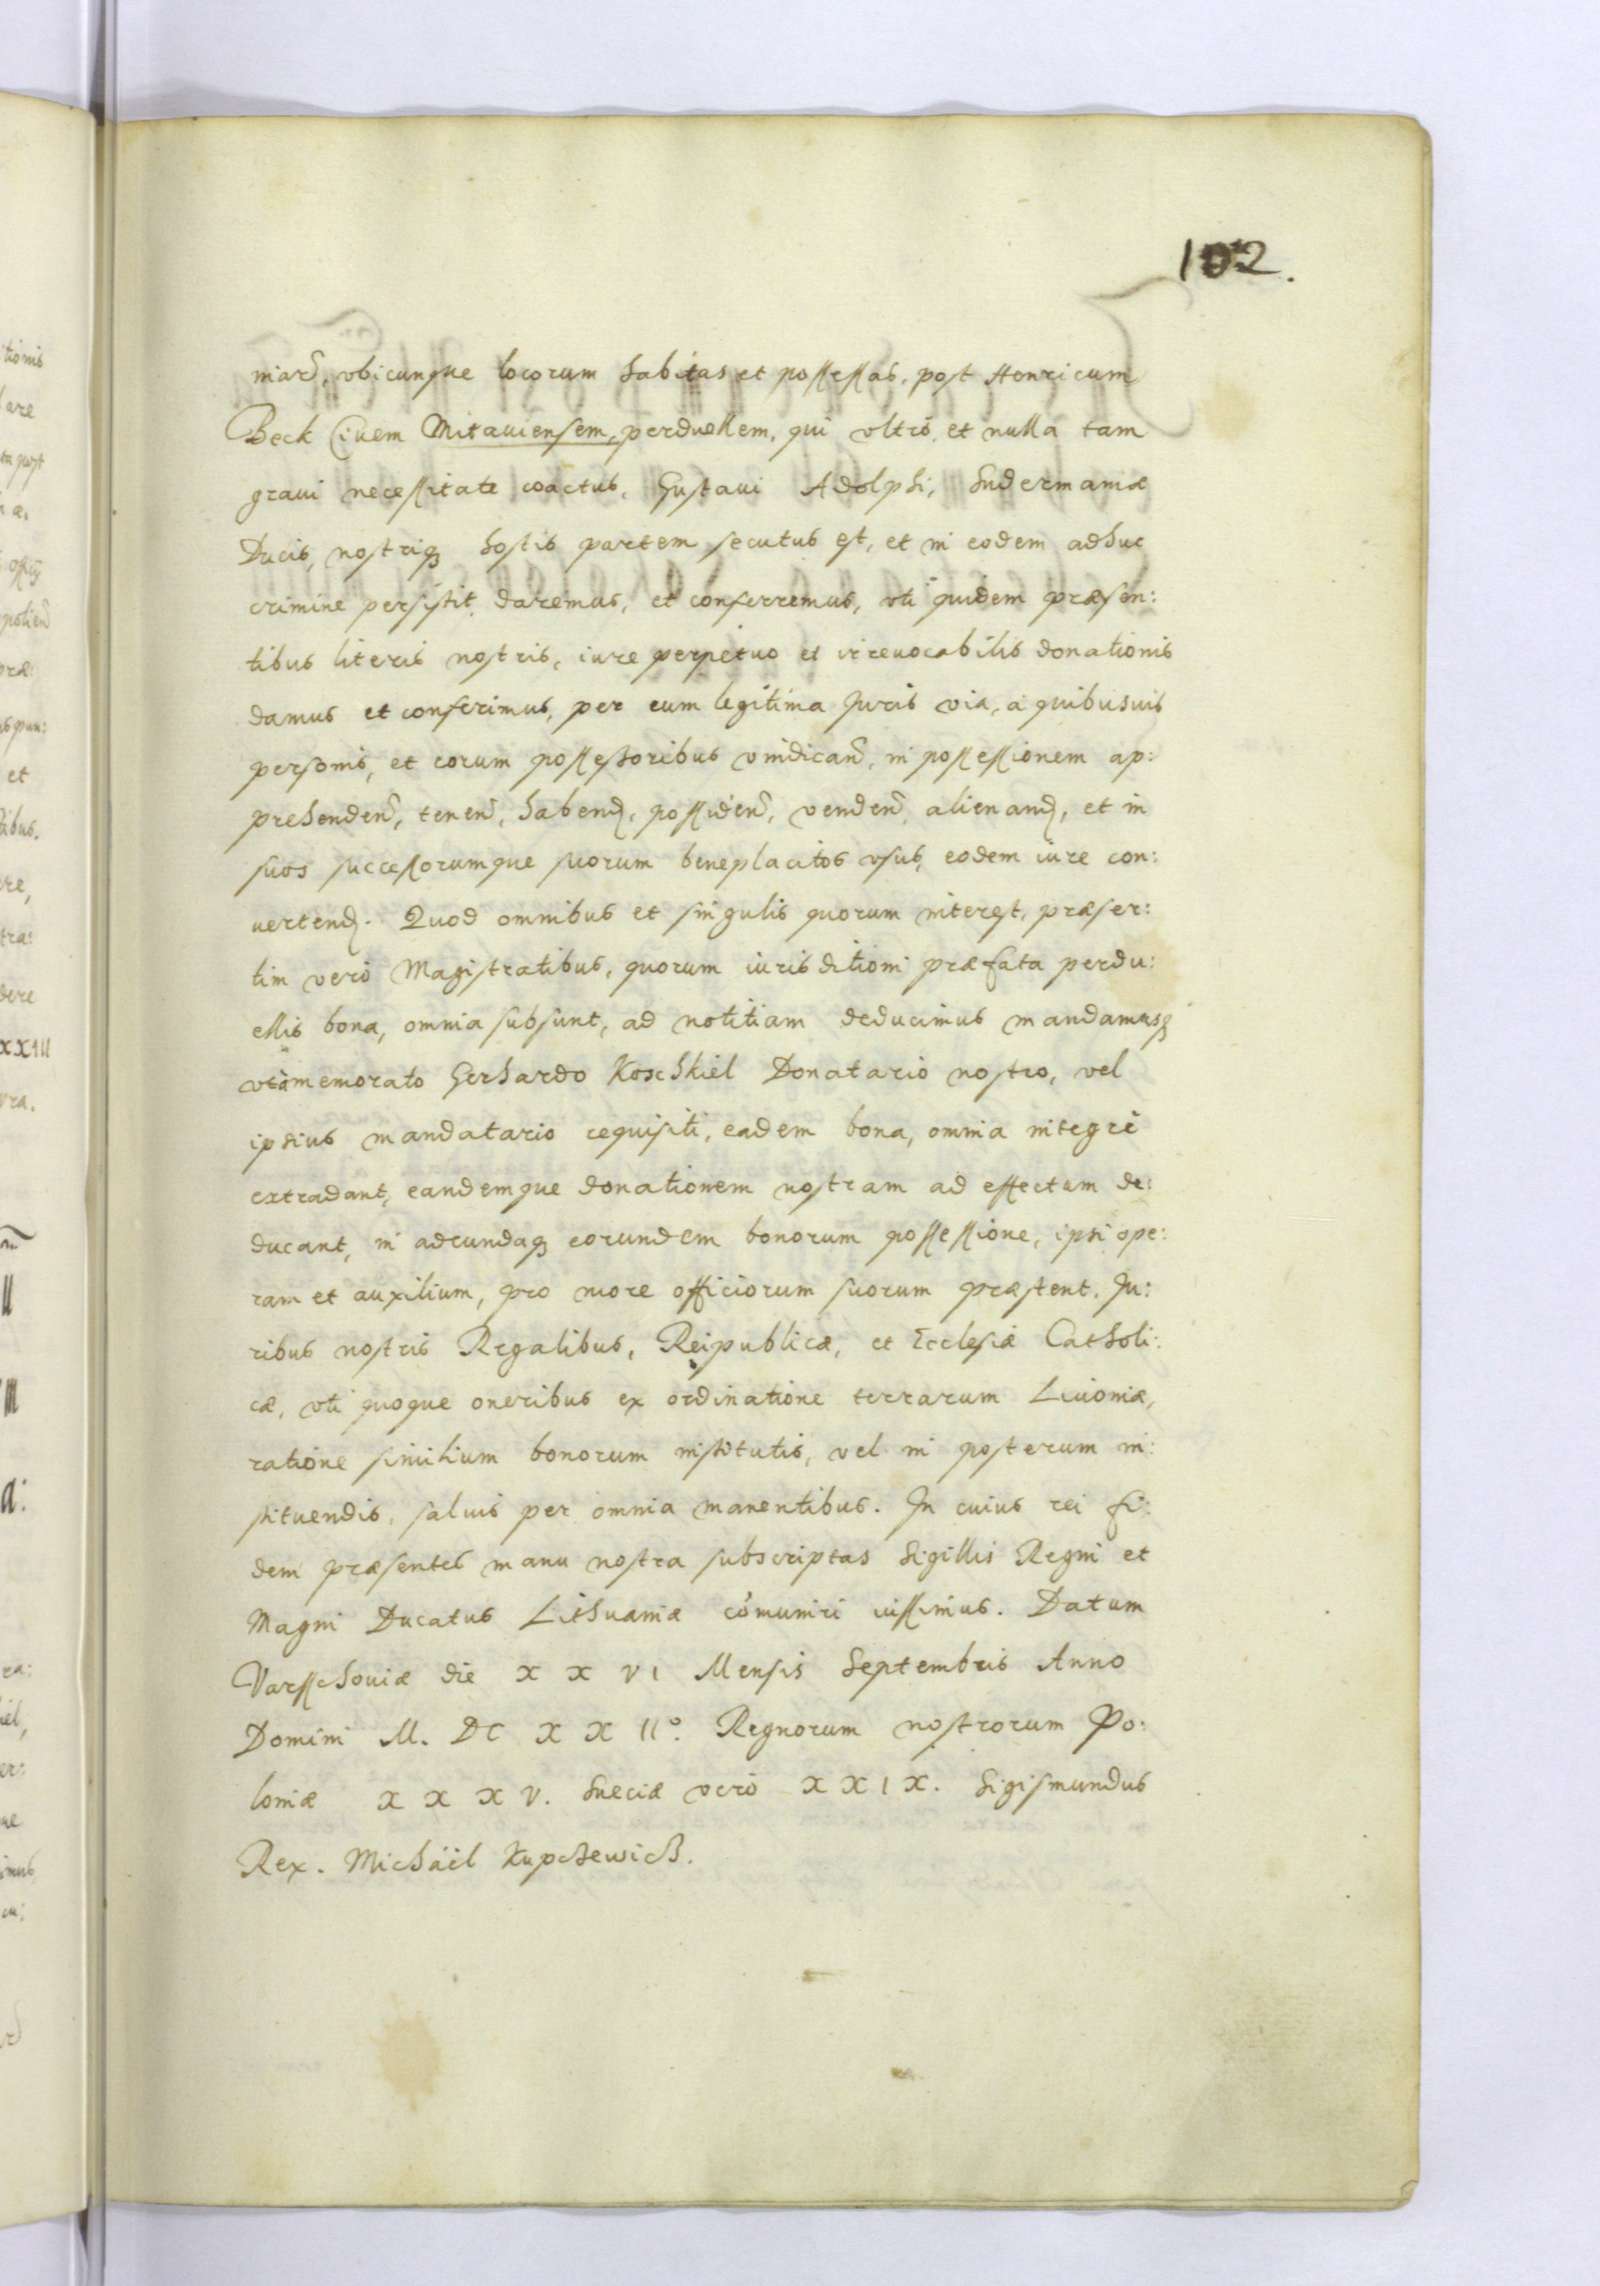 102.
niarũ, vbicunque locorum habitas et possessas, post Henricum
Beck Ciuem Mitauiensem, perduellem, qui vltrò, et nulla tam
graui necessitate coactus, Gustaui Adolphi, Sudermaniæ
Ducis, nostriq₃ hostis partem secutus est, et in eodem adhuc
crimine persistit, daremus, et conferremus, vti quidem præsen:
tibus literis nostris, iure perpetuo et irreuocabilis donationis
damus et conferimus, per eum legitima Juris via, à quibusuis
personis, et eorum possessoribus vindicand, in possessionem ap:
prehendend, tenend, habend, possidend, vendend, alienand, et in
suos successorumque suorum beneplacitos vsus, eodem iure con:
uertend. Quod omnibus et singulis quorum interest, præser:
tim verò Magistratibus, quorum iurisditioni præfata perdu:
ellis bona, omnia subsunt, ad notitiam deducimus mandamusq₃
memorato Gerhardo Koschkiel Donatario nostro, vel
ipsius mandatario requisiti, eadem bona, omnia integrè
extradant, eandemque donationem nostram ad effectum de:
ducant, in adeundaq₃ eorundem bonorum possessione, ipsi ope:
ram et auxilium, pro more officiorum suorum præstent. Ju:
ribus nostris Regalibus, Reipublicæ, et Ecclesiæ Catholi:
cæ, vti quoque oneribus ex ordinatione terrarum Liuoniæ,
ratione similium bonorum institutis, vel in posterum in:
stituendis, saluis per omnia manentibus. In cuius rei fi:
dem præsentes manu nostra subscriptas Sigillis Regni et
Magni Ducatus Lithuaniæ cõmuniri iussimus. Datum
Varsschouiæ die X X VI Mensis Septembris Anno
Domini M. DC X X II°. Regnorum nostrorum Po:
loniæ X X X V. Sueciæ verò X X I X. Sigismundus
Rex. Michäel Kupchewich.